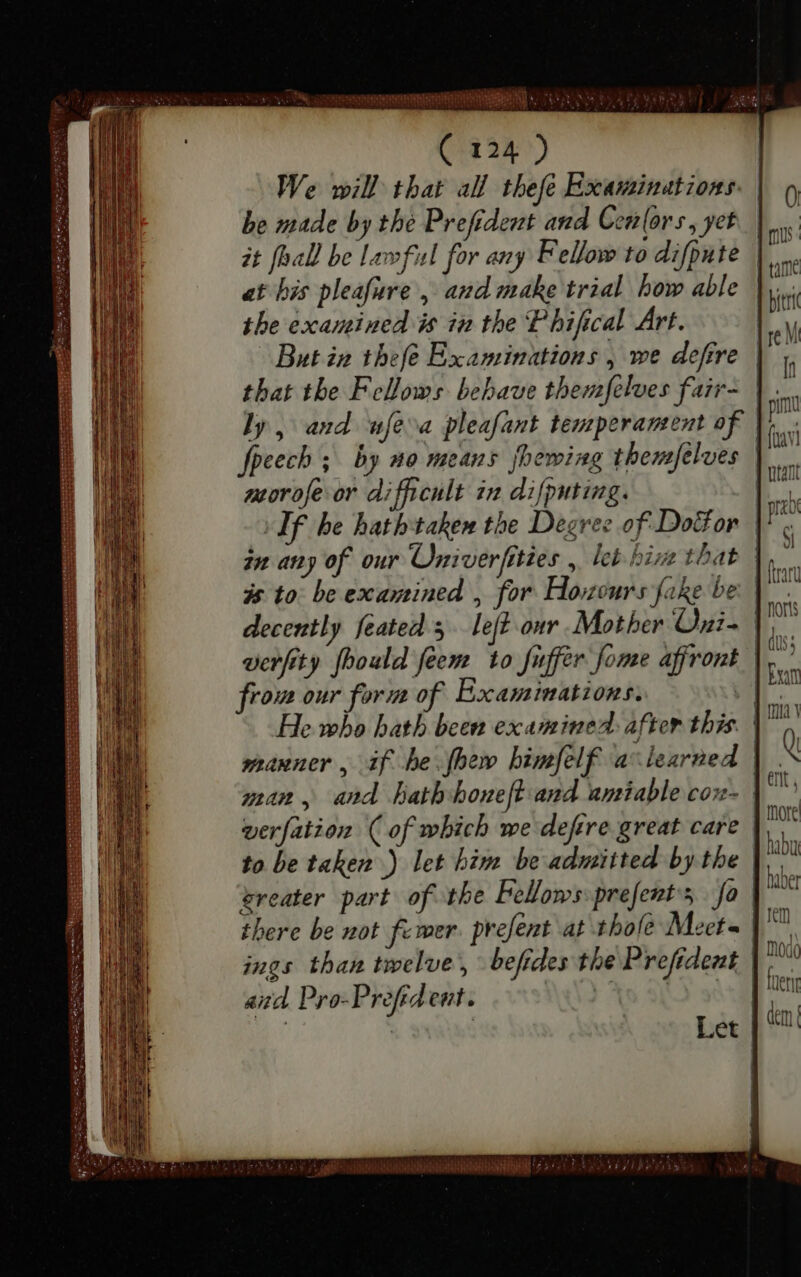 ( 124 )
We will that all theſe Examinations
be made by the Preſident and Cenſors, yet
it ſhall be lawful for any Fellow to diſpute
at his pleaſure, and make trial how able
the examined is in the Phiſical Art.
But in theſe Examinations, we deſire
that the Fellows behave themſelves fair-
ly, and uſe a pleaſant temperament of
ſpeech; by no means ſhewing themſelves
moroſe or difficult in diſputing.
If he hath taken the Degree of Doctor
in any of our Univerſities, let him that
is to be examined, for Honours ſake be
decently ſeated; leſt our Mother Uni-
verſity ſhould ſeem to ſuffer ſome affront
from our form of Examinations.
He who hath been examined after this
manner, if he ſhew himſelf a learned
man, and hath honeſt and amiable con-
verſation (of which we deſire great care
to be taken) let him be admitted by the
greater part of the Fellows preſent; ſo
there be not fewer preſent at thoſe Meet-
ings than twelve, beſides the Preſident
and Pro-Preſident.
Let